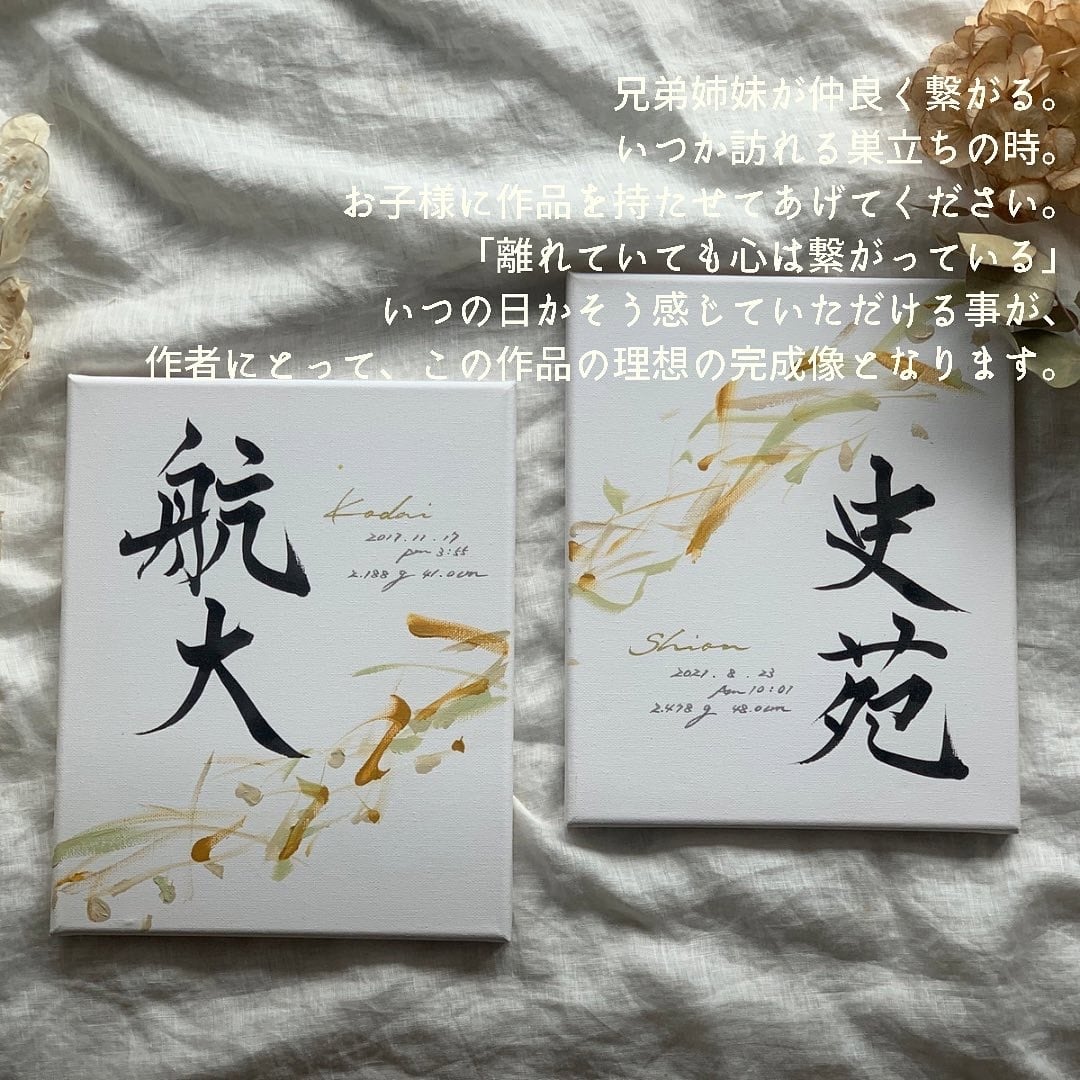 兄弟姉妹が仲良く繋がる。
いつか訪れる巣立ちの時。
お子様に作品を持たせてあげてください。
「離れていても心は繋がっている」
いつの日かそう感じていただける事が、
作者にとって、この作品の理想の完成像となります。
航大
Kodai
2017.11.17
pm 3:55
2.188g 41.0cm
史苑
Shion
2021.8.23
Am 10:01
2.478g 48.0cm